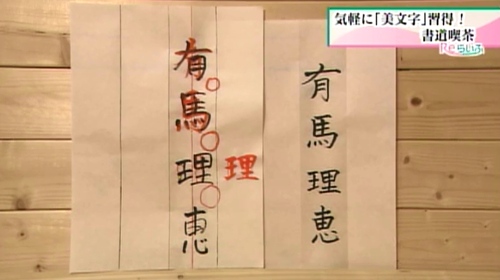 気軽に「美文字」習得!
書道喫茶
Reらいふ
有馬理恵
理
有馬理恵